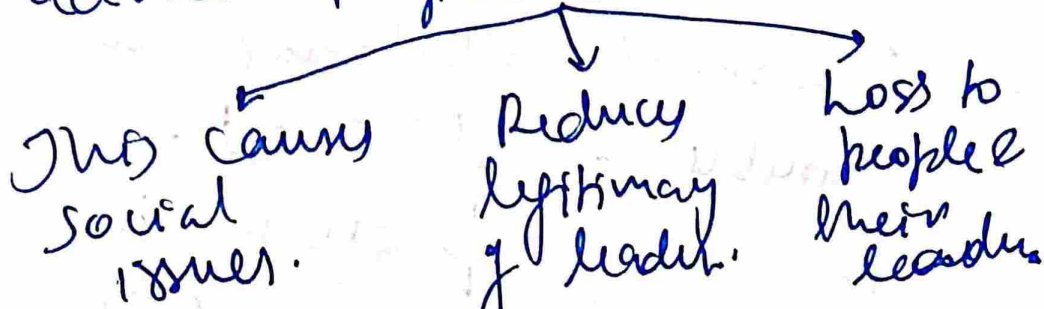 This causes
social
issues.
Reduces
legitimacy
of leader.
Loss to
people &
their
leader.